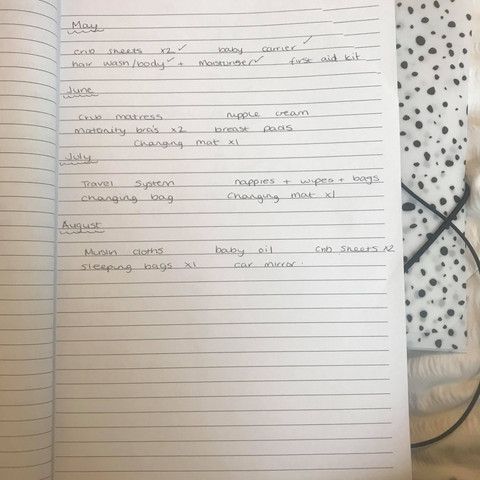 May
crib sheets x2 ✓ baby carrier ✓
hair wash/body ✓ + moisturiser ✓ first aid kit
June
crib matress nipple cream
maternity bra's x2 breast pads
changing mat x1
July
Travel System nappies + wipes + bags
changing bag changing mat x1
August
Muslin cloths baby oil crib sheets x2
sleeping bags x1 car mirror.